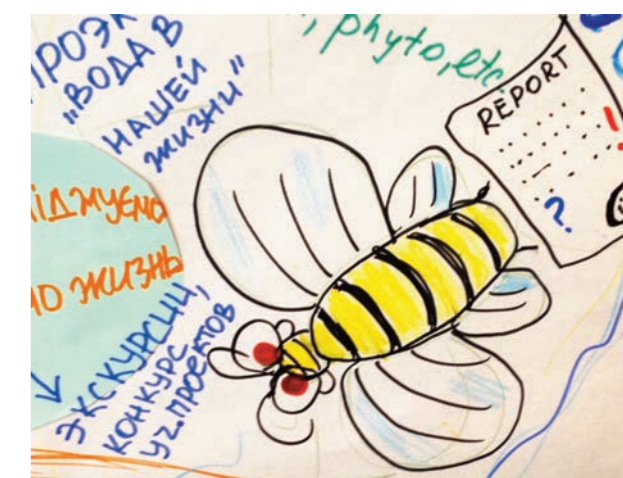 ПРОЭК
„ВОДА В
НАШЕЙ
ЖИЗНИ"
, phyto, etc
REPORT
?
ІДЖУЄМО
ЖИЗНЬ
ЭКСКУРСИИ,
КОНКУРС
УЧ. ПРОЕКТОВ